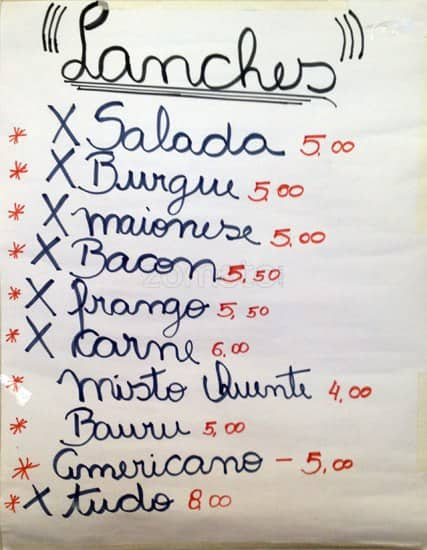 Lanches
* X Salada 5,00
* X Burgue 5,00
* X maionese 5,00
* X Bacon 5,50
* X frango 5,50
* X carne 6,00
* Misto Quente 4,00
* Bauru 5,00
* Americano - 5,00
* X tudo 8,00
zomato